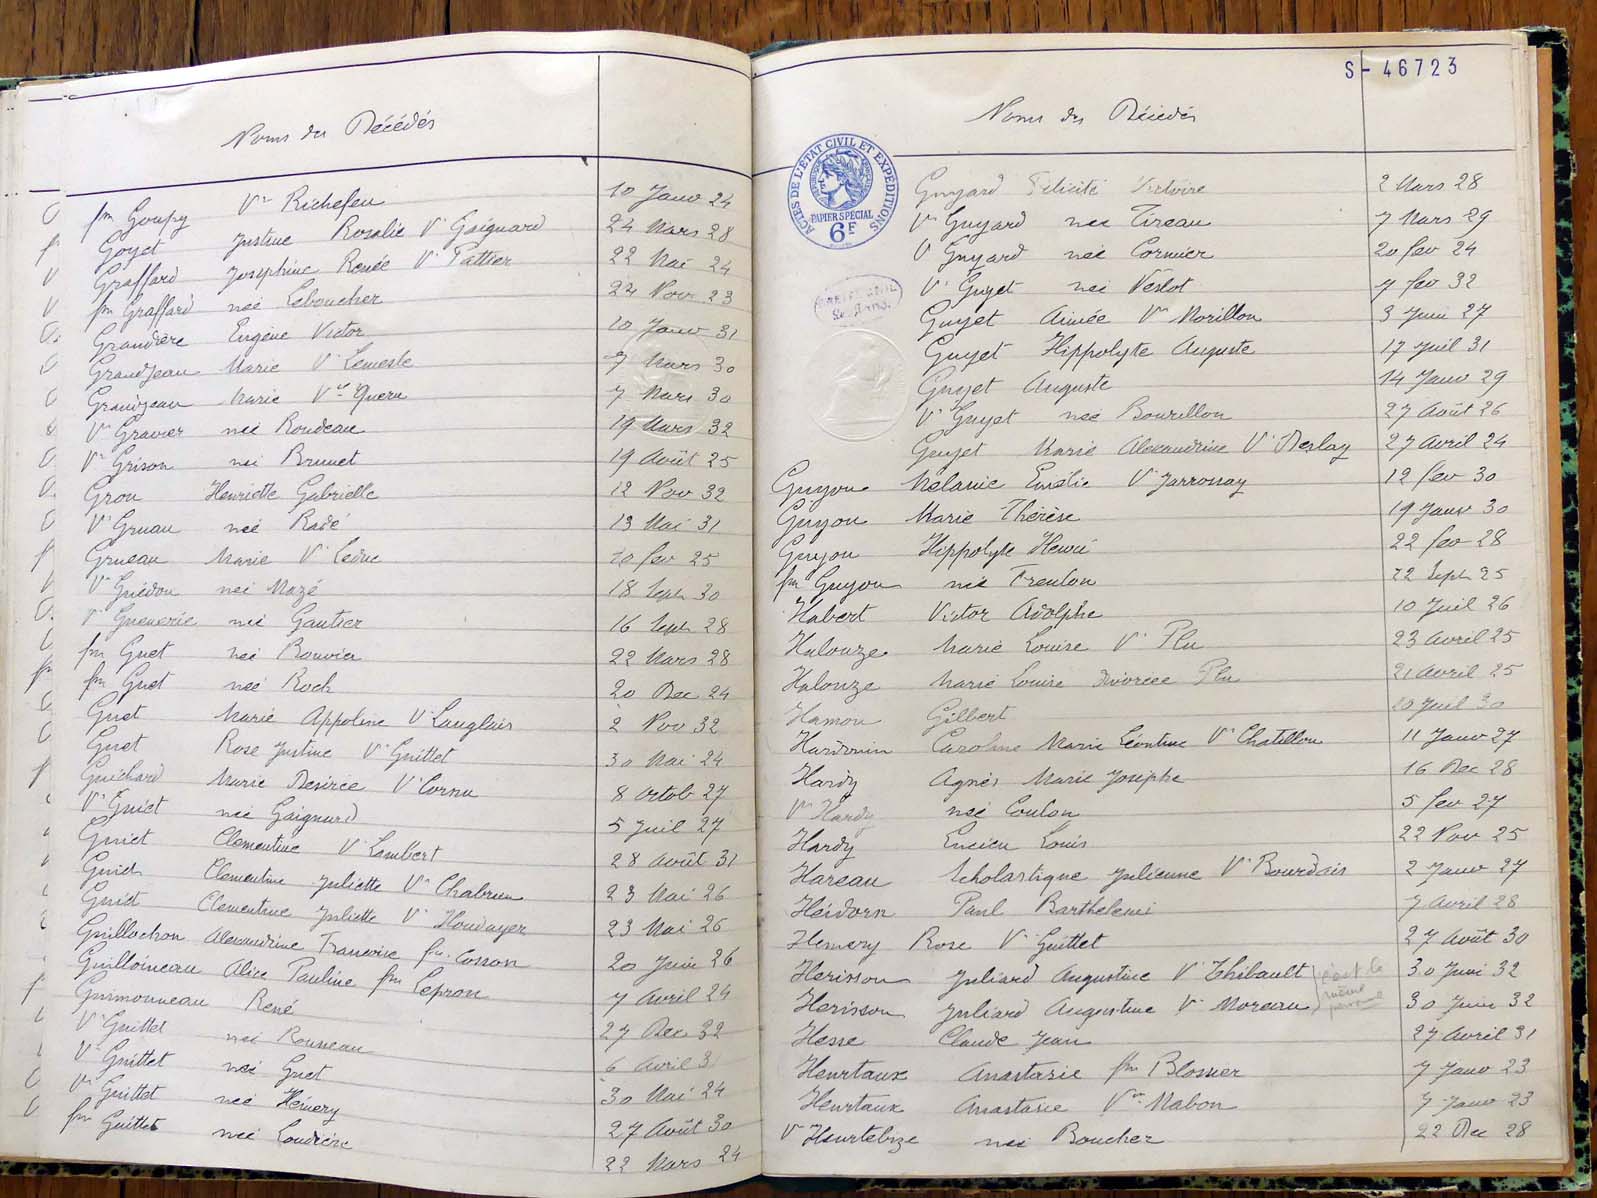 Noms des Décédés
fm Goupy Vve Richefeu 10 Janv 24
Goyet Justine Rosalie Ve Gaignard 24 Mars 28
Graffard Joséphine Renée Ve Pattier 22 Mai 24
fm Graffard née Leboucher 22 Nov 23
Grandière Eugène Victor 10 Janv 31
Grandjean Marie Ve Lemesle 7 Mars 30
Grandjean Marie Vve 7 Mars 30
Ve Gravier née Rondeau 19 Mars 32
Ve Grison née Brunet 19 Août 25
Grou Henriette Gabrielle 12 Nov 32
Ve Gruau née Radé 13 Mai 31
Grueau Marie Ve Leduc 10 fev 25
Ve Guédon née Mazé 18 Sept 30
Ve née Gautier 16 Sept 28
fm Guet née Bouvier 22 Mars 28
fm Guet née Roch 20 Dec 24
Guet Marie Appoline Ve Langlais 2 Nov 32
Guet Rose Justine Ve Guittet 30 Mai 24
Guichard Marie Desirée Ve Cornu 8 Octob 27
Ve Guiet née Gaignard 5 Juil 27
Guiet Clementine Ve Lambert 28 Août 31
Guiet Clementine Juliette Ve Chabrun 23 Mai 26
Guiet Clementine Juliette Ve Houdayer 23 Mai 26
Guillochon Alexandrine Francoise fm Cosson 20 Juin 26
Guilloineau Alice Pauline fm Lepron 7 Avril 24
Guimonneau René 27 Dec 32
Ve Guittet née Rousseau 6 Avril 31
Ve Guittet née Guet 30 Mai 24
Ve Guittet née Hémery 27 Août 30
fm Guittet née Loudière 22 Mars 24
S-46723
Noms des Décédés
ACTES DE L'ÉTAT CIVIL ET EXPÉDITIONS
PAPIER SPÉCIAL
6F
Guyard Félicité Victoire 2 Mars 28
Ve Guyard née Tireau 7 Mars 29
V Guyard née Cormier 20 fev 24
Ve Guyet née Véslot 7 fev 32
Guyet Aimée Ve Morillon 3 Juin 27
Guyet Hippolyte Auguste 17 Juil 31
Guyet Auguste 14 Janv 29
Ve Guyet née Bourillon 27 Août 26
Guyet Marie Alexandrine Ve Deslay 27 Avril 24
Guyon Mélanie Emélie Ve Jarrossay 12 fev 30
Guyon Marie Thérèse 19 Janv 30
Guyon Hippolyte Henri 22 fev 28
fm Guyon née Freulon 22 Sept 25
Habert Victor Adolphe 10 Juil 26
Halouze Marie Louise Ve Plu 23 Avril 25
Halouze Marie Louise Divorcée Plu 21 Avril 25
Hamon Gilbert 20 Juil 30
Hardouin Caroline Marie Léontine Ve Chatillon 11 Janv 27
Hardy Agnès Marie Josèphe 16 Dec 28
Ve Hardy née Coulon 5 fev 27
Hardy Lucien Louis 22 Nov 25
Hareau Scholastique Julienne Ve Bourdais 2 Janv 27
Heidorn Paul Barthélemi 7 Avril 28
Hemery Rose Ve Guittet 27 Août 30
Herisson Juliard Augustine Ve Thibault 30 Juin 32
Herisson Juliard Augustine Ve Moreau 30 Juin 32
c'est la même personne
Hesse Claude Jean 27 Avril 31
Heurtaux Anastasie fm Blossier 7 Janv 23
Heurtaux Anastasie Vve Mabon 7 Janv 23
Ve Heurtebize née Boucher 22 Dec 28